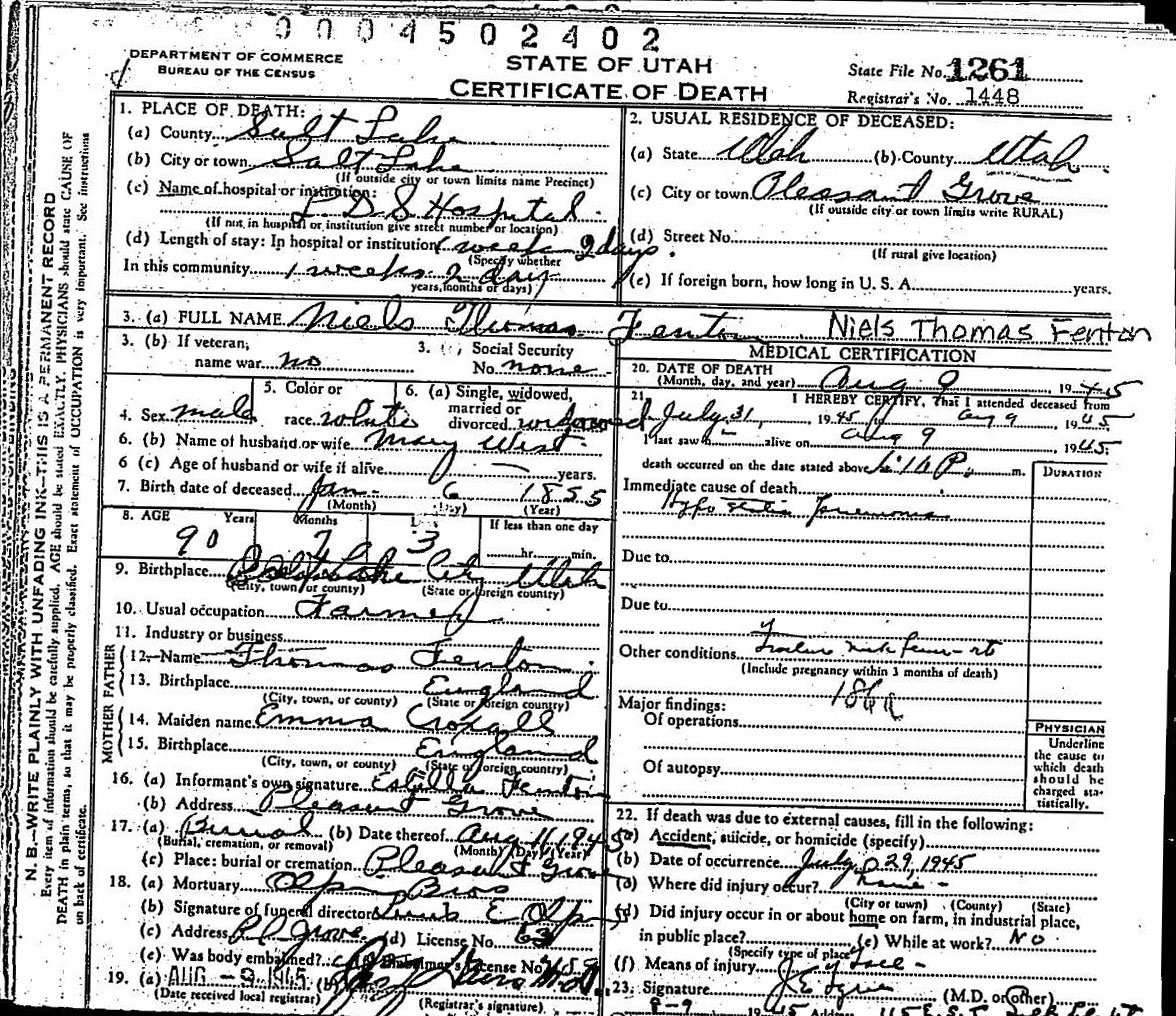 0004502402
DEPARTMENT OF COMMERCE
BUREAU OF THE CENSUS
STATE OF UTAH
CERTIFICATE OF DEATH
State File No. 1261
Registrar's No. 1448
1. PLACE OF DEATH:
(a) County Salt Lake
(b) City or town Salt Lake
(If outside city or town limits name Precinct)
(c) Name of hospital or institution:
L D S Hospital
(If not in hospital or institution give street number or location)
(d) Length of stay: In hospital or institution 1 week 2 days.
(Specify whether
In this community 1 weeks 2 days
years, months or days)
2. USUAL RESIDENCE OF DECEASED:
(a) State Utah (b) County Utah
(c) City or town Pleasant Grove
(If outside city or town limits write RURAL)
(d) Street No.
(If rural give location)
(e) If foreign born, how long in U. S. A. years.
3. (a) FULL NAME Niels Thomas Fenton Niels Thomas Fenton
3. (b) If veteran, name war no
3. (c) Social Security No. none
4. Sex male
5. Color or race white
6. (a) Single, widowed, married or divorced widowed
6. (b) Name of husband or wife Mary West
6 (c) Age of husband or wife if alive years.
7. Birth date of deceased Jan- 6 1855
(Month) (Day) (Year)
8. AGE Years Months Days If less than one day
90 7 3 hr. min.
9. Birthplace Salt Lake City Utah
(City, town or county) (State or foreign country)
10. Usual occupation Farmer
11. Industry or business
FATHER
12. Name Thomas Fenton
13. Birthplace England
(City, town, or county) (State or foreign country)
MOTHER
14. Maiden name Emma Croxall
15. Birthplace England
(City, town, or county) (State or foreign country)
16. (a) Informant's own signature Estella Fenton
(b) Address Pleasant Grove
17. (a) Burial (b) Date thereof Aug 11, 1945
(Burial, cremation, or removal) (Month) (Day) (Year)
(c) Place: burial or cremation Pleasant Grove
18. (a) Mortuary Olpin Bros
(b) Signature of funeral director E Olpin
(c) Address Pl Grove (d) License No. 63
(e) Was body embalmed? Embalmer's License No.
19. (a) AUG -9 1945 (b)
(Date received local registrar) (Registrar's signature)
MEDICAL CERTIFICATION
20. DATE OF DEATH
(Month, day, and year) Aug 9, 1945
21. I HEREBY CERTIFY, That I attended deceased from
July 31, 1945 aug 9 1945
I last saw h alive on aug 9 1945
death occurred on the date stated above m.
DURATION
Immediate cause of death
Hypostatic Pneumonia
Due to
Due to
Other conditions
(Include pregnancy within 3 months of death)
186a
Major findings:
Of operations
Of autopsy
PHYSICIAN
Underline
the cause to
which death
should be
charged sta-
tistically.
22. If death was due to external causes, fill in the following:
(a) Accident, suicide, or homicide (specify)
(b) Date of occurrence July 29, 1945
(c) Where did injury occur? home -
(City or town) (County) (State)
(d) Did injury occur in or about home on farm, in industrial place,
in public place? (e) While at work? No
(Specify type of place)
(f) Means of injury fall -
23. Signature (M.D. or other)
8-9 1945 Address 115 E. S. T.
N. B.—WRITE PLAINLY WITH UNFADING INK—THIS IS A PERMANENT RECORD
Every item of information should be carefully supplied. AGE should be stated EXACTLY. PHYSICIANS should state CAUSE OF
DEATH in plain terms, so that it may be properly classified. Exact statement of OCCUPATION is very important. See instructions
on back of certificate.